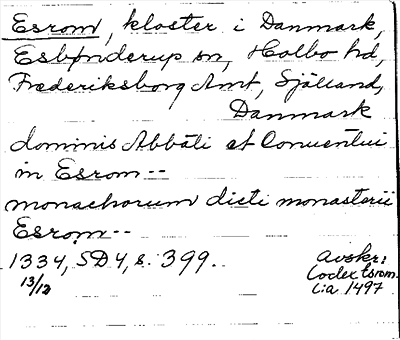 Esrom, kloster i Danmark,
Esbønderup sn, Holbo hd,
Frederiksborg Amt, Sjælland,
Danmark
dominis Abbati et Conventui
in Esrom --
monachorum dicti monasterii
Esrom --
1334, SD 4, s. 399.
13/12
Avskr.:
Codex Esrom.
c:a 1497